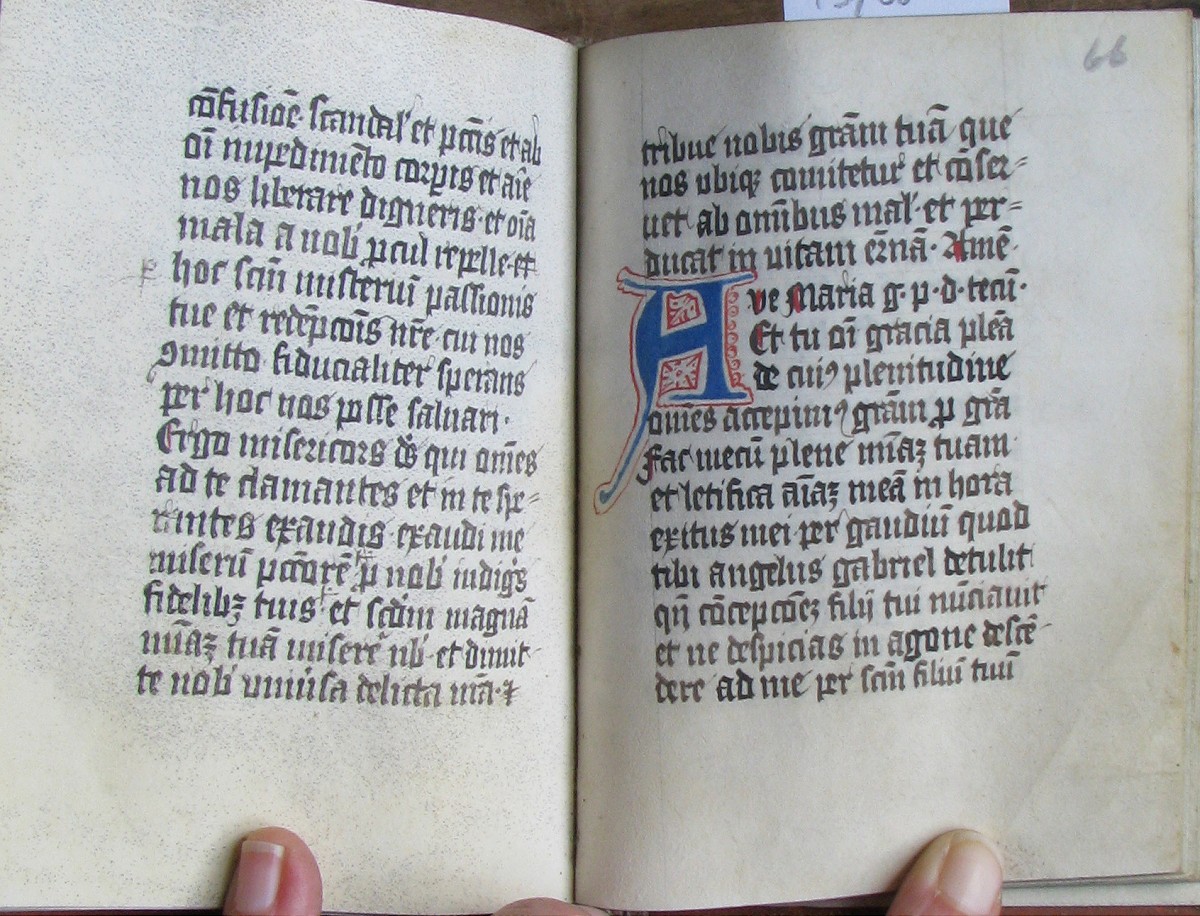 cōfusiōe· scandal' et pctīs et ab
oī inpedimēto corpris et aīe
nos liberare digneris· et oīa
mala a nob' ꝓcul repelle· et
hoc scm̄ misteriū passionis
tue et redēpcōis nr̄e cui nos
ꝯmitto· fiducialiter sperans
per hoc nos posse saluari·
Ergo misericors ds̄ qui om̄es
ad te clamantes et in te spe-
rantes exaudis· exaudi me
miserū pctorē ꝓ nob' indigis
fidelibꝫ tuis et scdm̄ magnā
mīaꝫ tuā miserē nb'· et dimit-
te nob' uniūsa delicta nr̄a· ⁊
66
tribue nobis grām tuā que
nos ubiqꝫ comitetur et cōser-
uet ab om̄ibus mal' et per-
ducat in vitam et̄nā· Amē·
Ave Maria g· p· d· tecū·
Et tu oī gracia plēa
de cuiꝰ plenitudine
om̄es accepimꝰ grām ꝓ grā
Fac mecū plene mīaꝫ tuam·
et letifica aīaꝫ meā in hora
exitus mei per gaudiū quod
tibi angelus gabriel detulit
qn̄ cōcepcōeꝫ filij tui nūciauit
et ne despicias in agone descē-
dere ad me per scm̄ filiū tuū